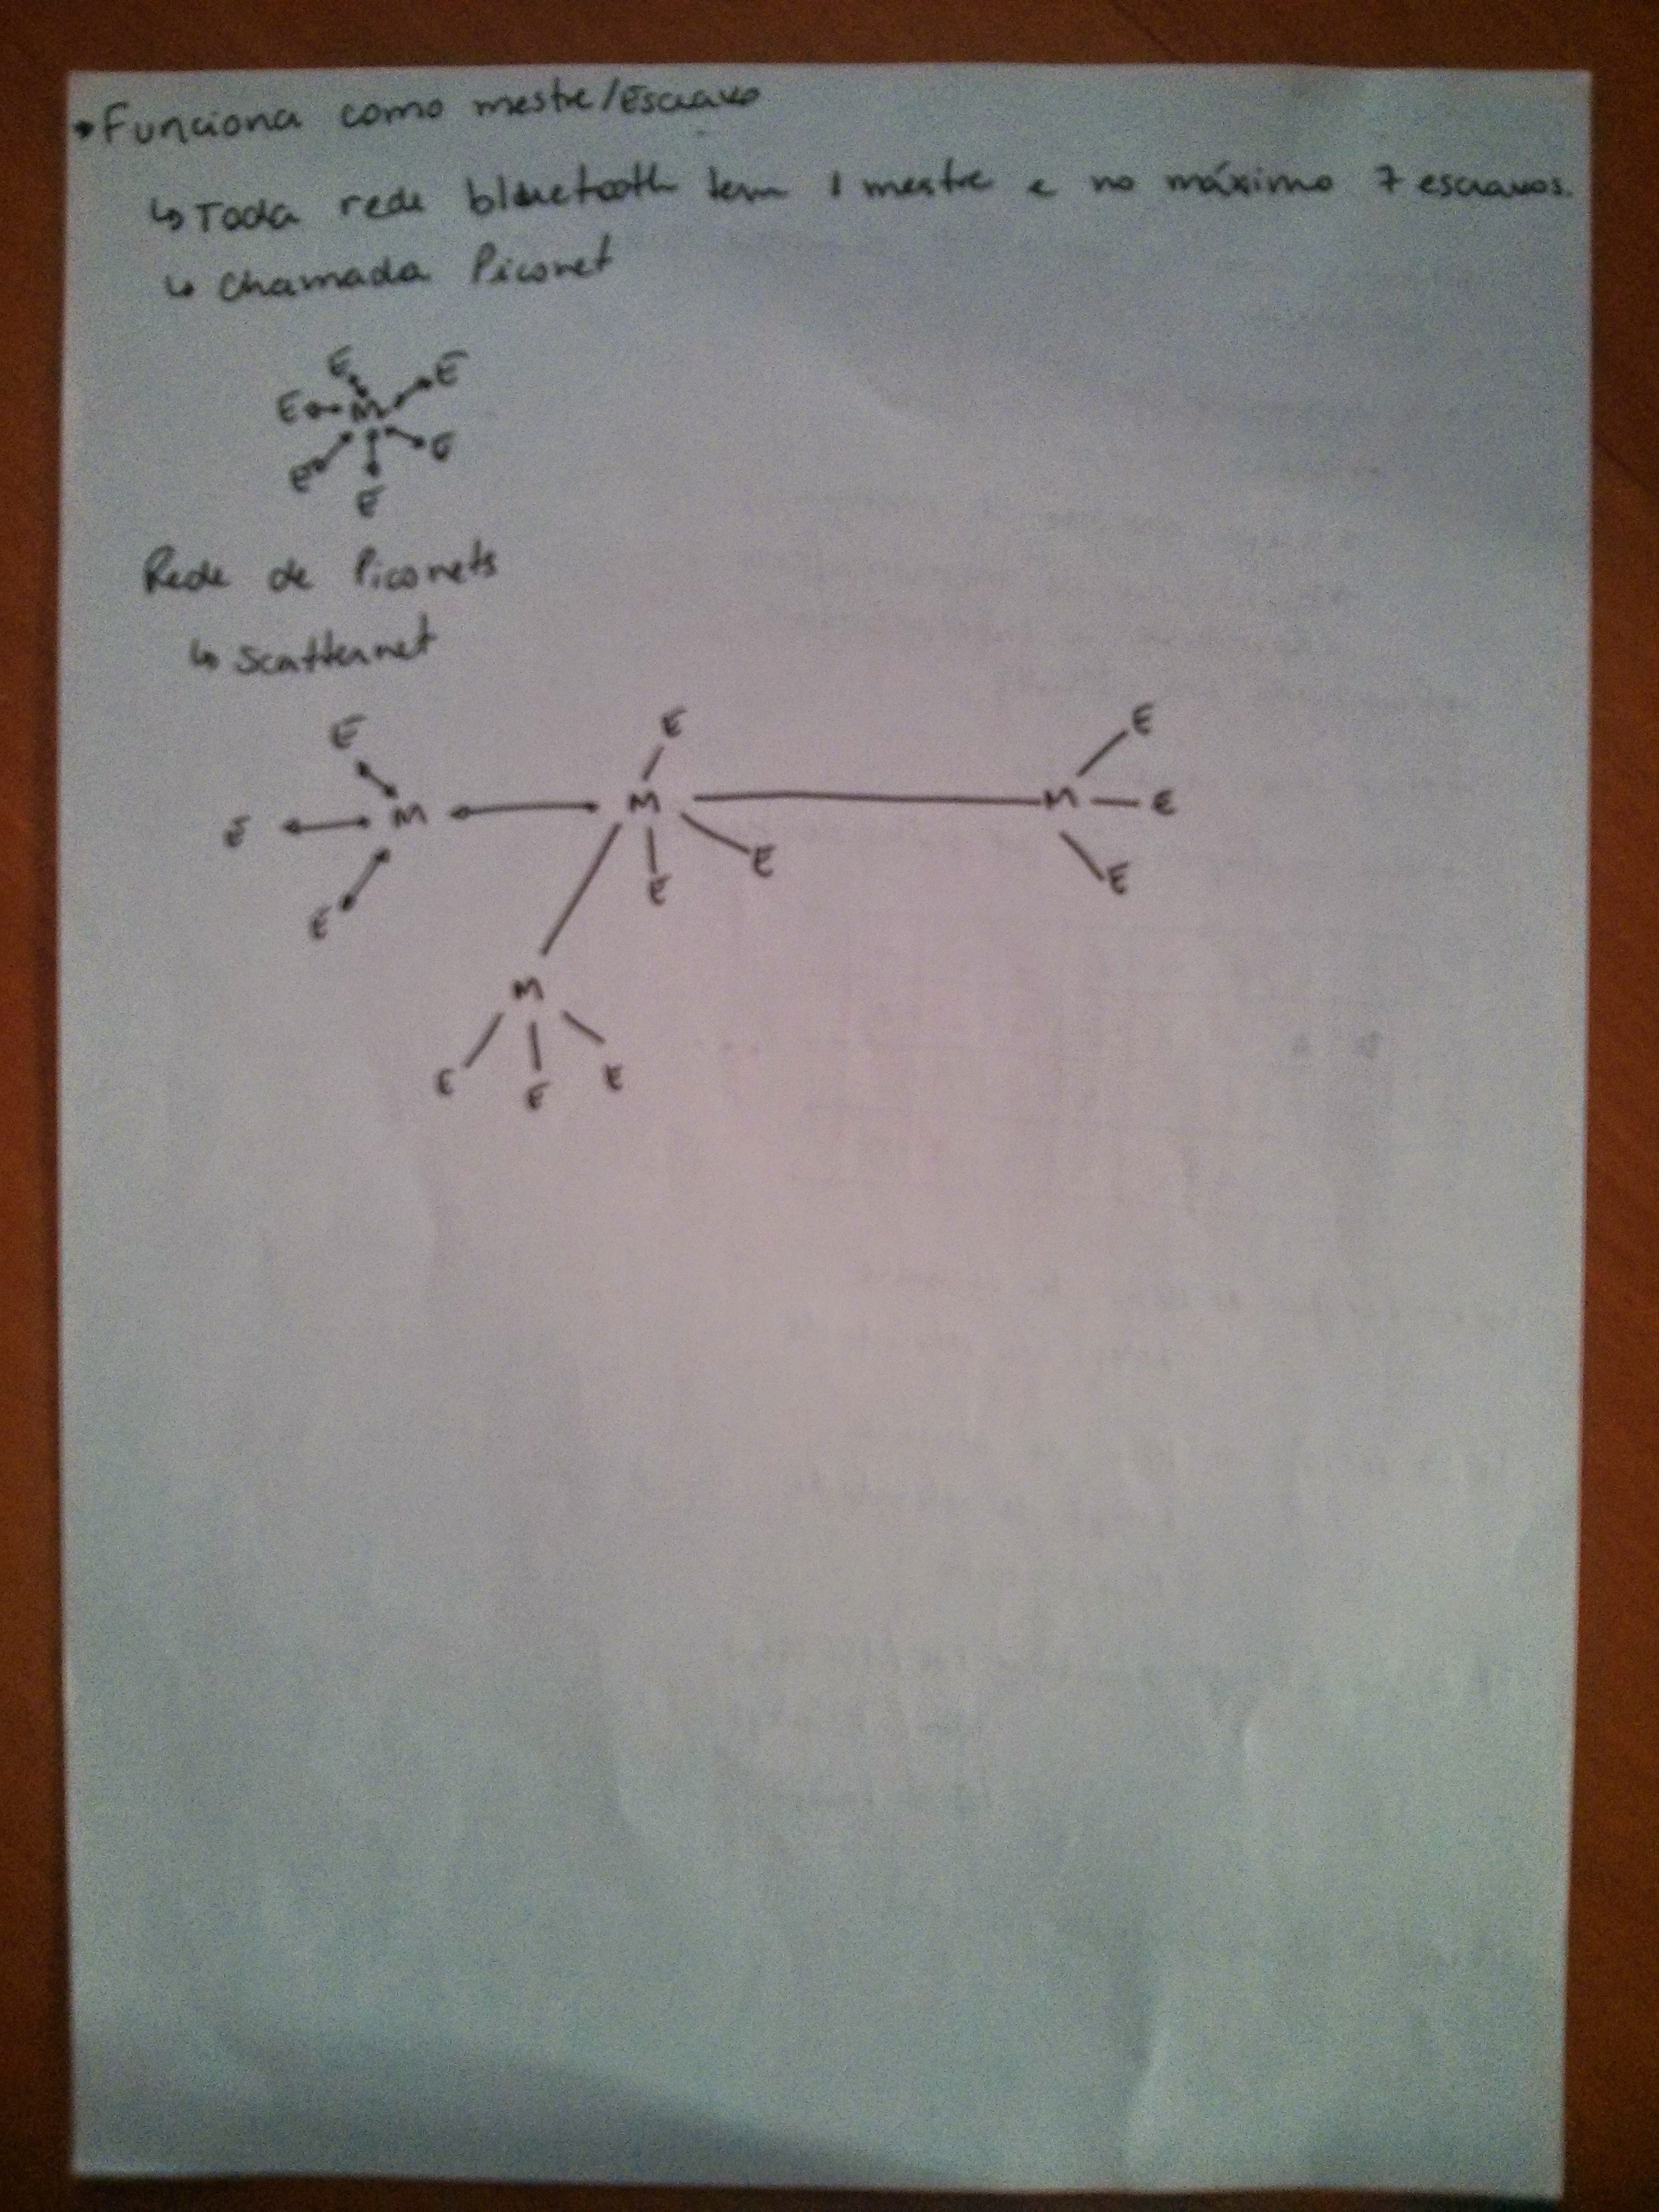 • Funciona como mestre/Escravo
↳ Toda rede bluetooth tem 1 mestre e no máximo 7 escravos.
↳ Chamada Piconet
E E
E M
E E
E
Rede de Piconets
↳ Scatternet
E E E
E M M M E
E E E E
M
E E E